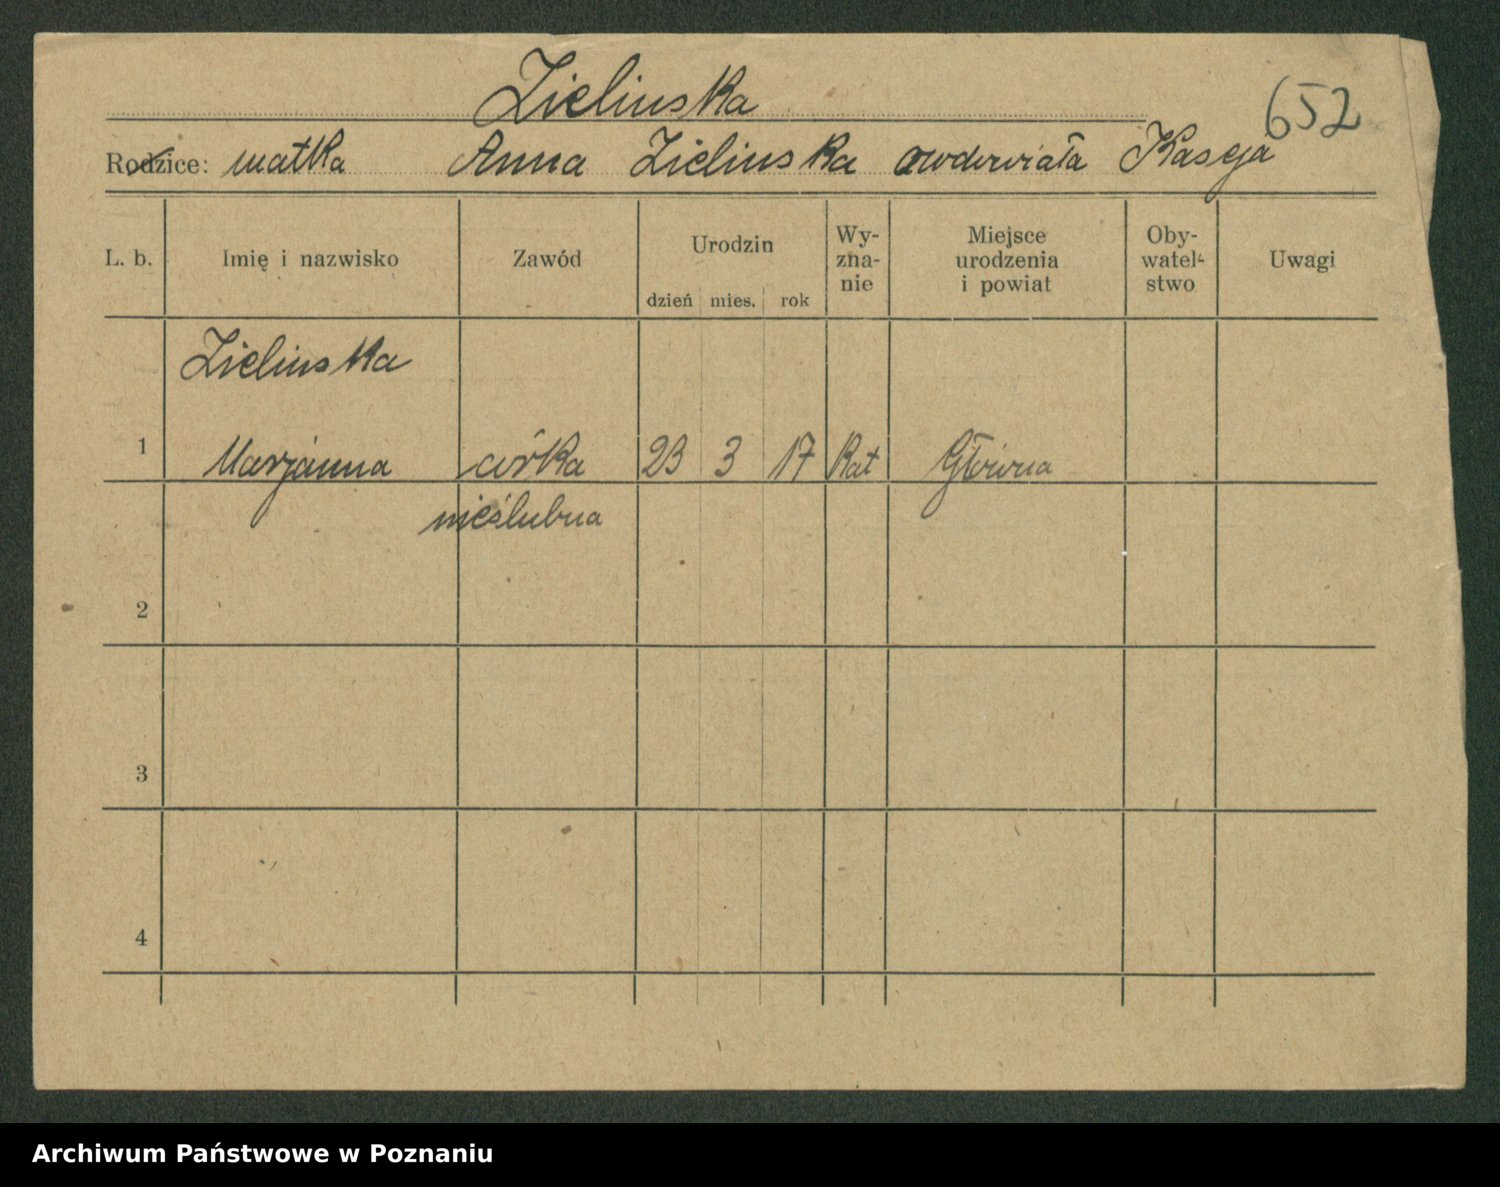 Zielinska
652
Rodzice: matka Anna Zielinska owdowiała Kaseja
L. b.
Imię i nazwisko
Zawód
Urodzin
dzień mies. rok
Wy-
zna-
nie
Miejsce
urodzenia
i powiat
Oby-
watel-
stwo
Uwagi
Zielinska
1 Marjanna córka 23 3 17 Kat Główna
nieślubna
2
3
4
Archiwum Państwowe w Poznaniu